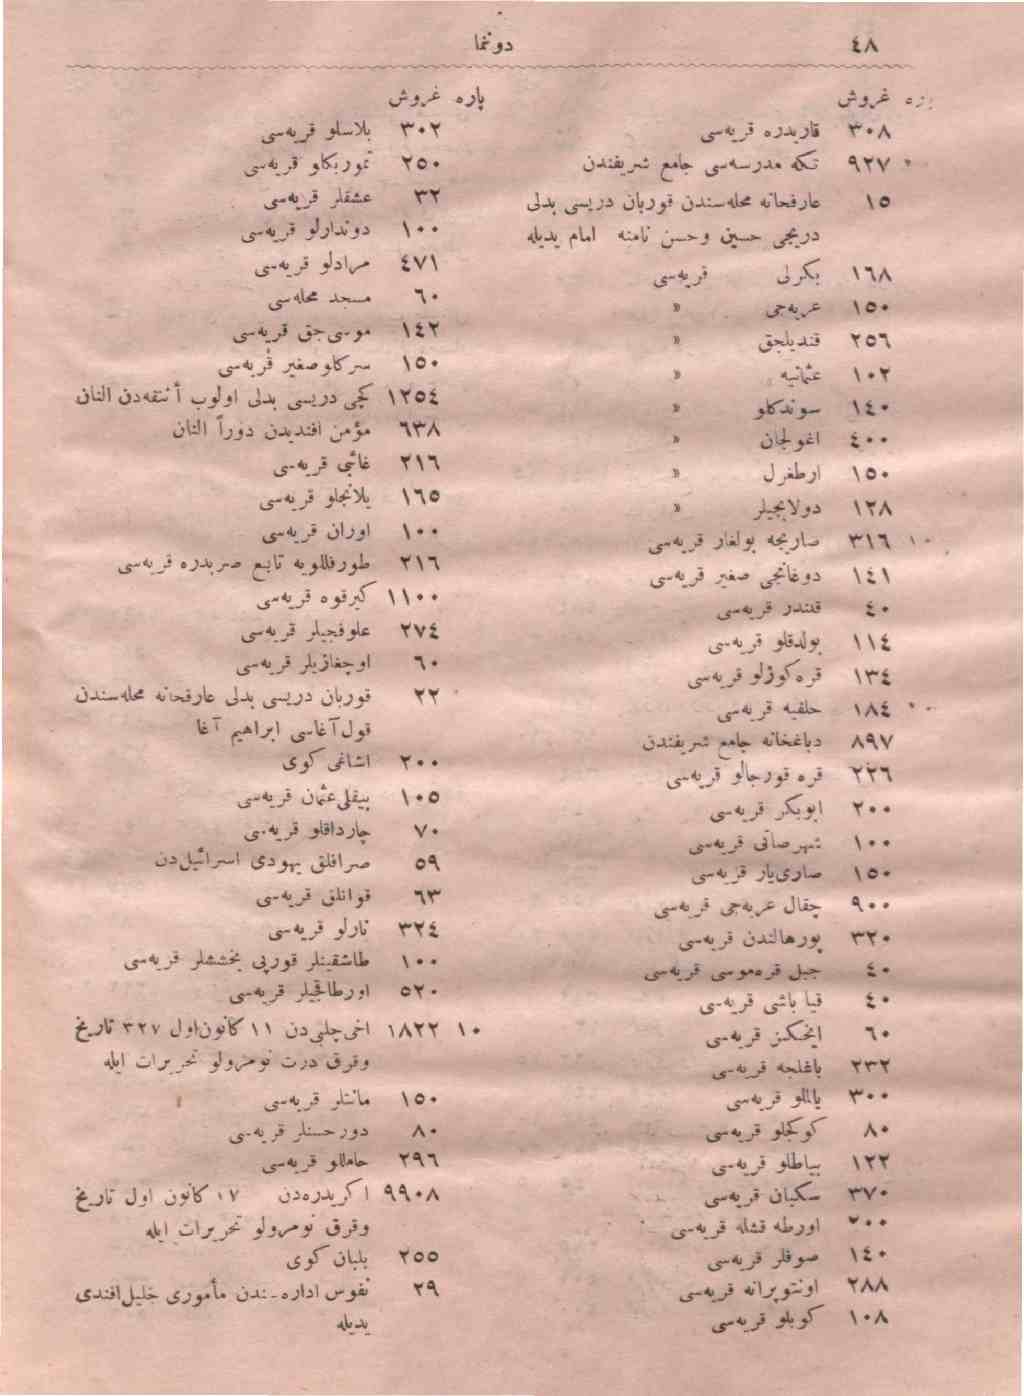 ٤٨
دونما
پاره غروش
٣٠٨ قاریدره قریه‌سی
٩٢٧ تکه مدرسه‌سی جامع شریفندن
١٥ عارفخانه محله‌سندن قوربان دریسی بدلی
دریجی حسین وحسن نامنه امام یدیله
١٦٨ بکرلی قریه‌سی
١٥٠ عربه‌جی »
٢٥٦ قندیلجق »
١٠٢ عثمانیه »
١٤٠ سوندکلو »
٤٠٠ اغولجان »
١٥٠ ارطغرل »
١٢٨ دولابجیلر »
١٠ ٣١٦ صاریجه بولغار قریه‌سی
١٤١ دوغانجی صغیر قریه‌سی
٤٠ قلندر قریه‌سی
١١٤ بولدقلو قریه‌سی
١٣٤ قره‌کوزلو قریه‌سی
١٨٤ حلفیه قریه‌سی
٨٩٧ دباغخانه جامع شریفندن
٢٢٦ قره قورجالو قریه‌سی
٢٠٠ ابوبکر قریه‌سی
١٠٠ شهرصانی قریه‌سی
١٥٠ صاری‌یار قریه‌سی
٩٠٠ چقال عربه‌جی قریه‌سی
٣٢٠ پورهالندن قریه‌سی
٤٠ جبل قره‌موسی قریه‌سی
٤٠ قیا باشی قریه‌سی
٦٠ اینجکز قریه‌سی
٢٣٢ باغلجه قریه‌سی
٣٠٠ یاللو قریه‌سی
٨٠ کوکجلو قریه‌سی
١٢٢ بیاطلو قریه‌سی
٣٧٠ سکبان قریه‌سی
٢٠٠ اورطه قشله قریه‌سی
١٤٠ صوفلر قریه‌سی
٢٨٨ اونتوپرانه قریه‌سی
١٠٨ کوبلو قریه‌سی
پاره غروش
٣٠٢ بلاسلو قریه‌سی
٢٥٠ تموربکلو قریه‌سی
٣٢ عشقلر قریه‌سی
١٠٠ دوندارلو قریه‌سی
٤٧١ مرادلو قریه‌سی
٦٠ مسجد محله‌سی
١٤٢ موسی‌جق قریه‌سی
١٥٠ سرکلو صغیر قریه‌سی
١٢٥٤ کچی دریسی بدلی اولوب أشقه‌دن النان
٦٣٨ مؤمن افندیدن دوراً النان
٢١٦ غائبی قریه‌سی
١٦٥ یلانجلو قریه‌سی
١٠٠ اوران قریه‌سی
٢١٦ طورفللویه تابع صریدره قریه‌سی
١١٠٠ کبرقوه قریه‌سی
٢٧٤ علوفجیلر قریه‌سی
٦٠ اوچغازیلر قریه‌سی
٢٢ قوربان دریسی بدلی عارفخانه محله‌سندن
قول‌آغاسی ابراهیم آغا
٢٠٠ اشاغی کوی
١٠٥ بیقلی‌عثمان قریه‌سی
٧٠ چارداقلو قریه‌سی
٥٩ صرافلق یهودی اسرائیل‌دن
٦٣ قوانلق قریه‌سی
٣٢٤ نارلو قریه‌سی
١٠٠ طاشقینلر قوربی بخششلر قریه‌سی
٥٢٠ اورطاقجیلر قریه‌سی
١٠ ١٨٢٢ اخی‌چلبی‌دن ١١ کانون‌اول ٣٢٧ تاریخ
وقرق درت نومرولو تحریرات ایله
١٥٠ مانتلر قریه‌سی
٨٠ دورحسنلر قریه‌سی
٢٩٦ حاللو قریه‌سی
٩٩٠٨ اکریدره‌دن ١٧ کانون اول تاریخ
وقرق نومرولو تحریرات ایله
٢٥٥ بلبان کوی
٢٩ نفوس اداره‌سندن مأموری خلیل‌افندی
یدیله